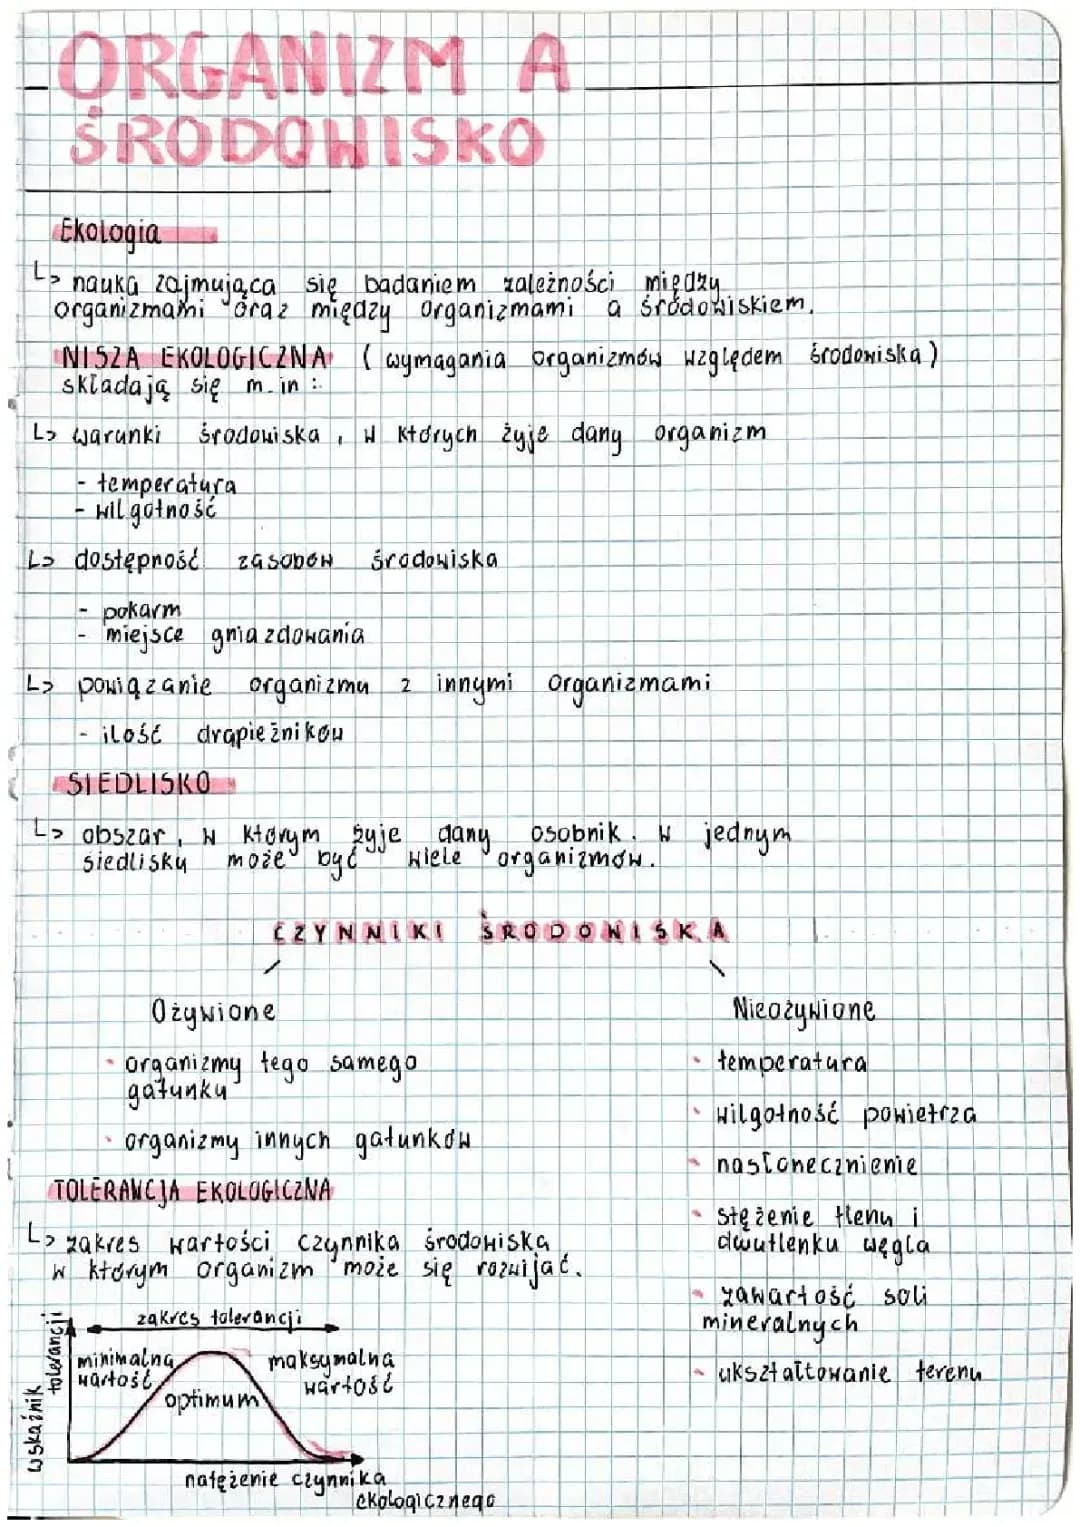 ORGANIZM A
ŚRODOWISKO
Ekologia
↳ nauka zajmująca się badaniem zależności między
organizmami oraz między organizmami a środowiskiem.
NISZA EKOLOGICZNA (wymagania organizmów względem środowiska)
składają się m.in:
↳ warunki środowiska, w których żyje dany organizm
- temperatura
- wilgotność
↳ dostępność zasobów środowiska
- pokarm
- miejsce gniazdowania
↳ powiązanie organizmu z innymi organizmami
- ilość drapieżników
SIEDLISKO
↳ obszar, w którym żyje dany osobnik. W jednym
siedlisku może być wiele organizmów.
CZYNNIKI ŚRODOWISKA
Ożywione
• organizmy tego samego
gatunku
• organizmy innych gatunków
Nieożywione
• temperatura
• wilgotność powietrza
• nasłonecznienie
• stężenie tlenu i
dwutlenku węgla
• zawartość soli
mineralnych
• ukształtowanie terenu
TOLERANCJA EKOLOGICZNA
↳ zakres wartości czynnika środowiska
w którym organizm może się rozwijać.
zakres tolerancji
wskaźnik tolerancji
minimalna
wartość
optimum
maksymalna
wartość
natężenie czynnika
ekologicznego